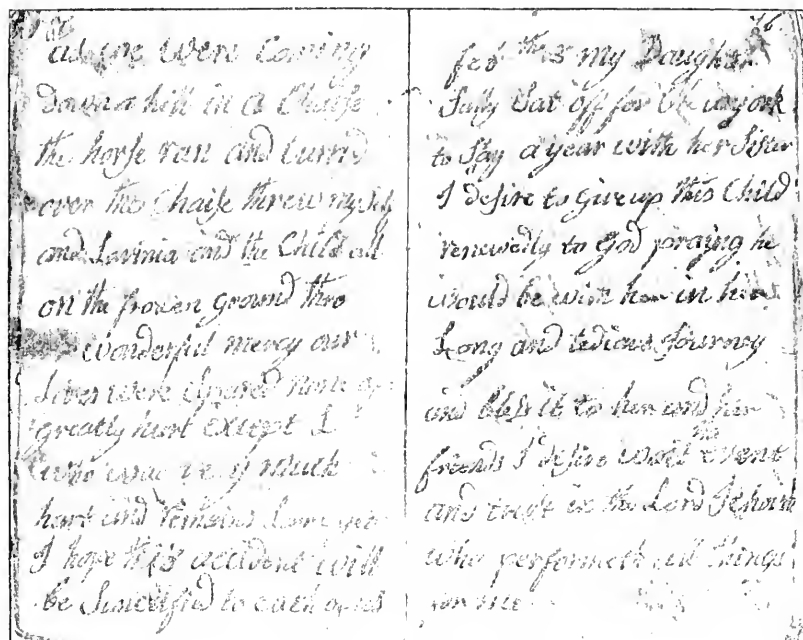 as we were Coming
down a hill in a Chaise
the horse ran and turnd
over the Chaise threw my self
and Lavinia and the Child all
on the frozen ground thro
wonderful mercy our
Lives were Spared none of
greatly hurt Except I
who was very much
hurt and remains Lame yet
I hope this accident will
be Sanctified to each of us
76
feb my Daughter
Sally Sat off for
to Stay a year with her Sister
I desire to give up this Child
renewedly to God praying he
would be with her in her
Long and tedious Journey
and bless it to her and her
friends I desire wait the event
and trust in the Lord Jehovah
who performeth all things
for me